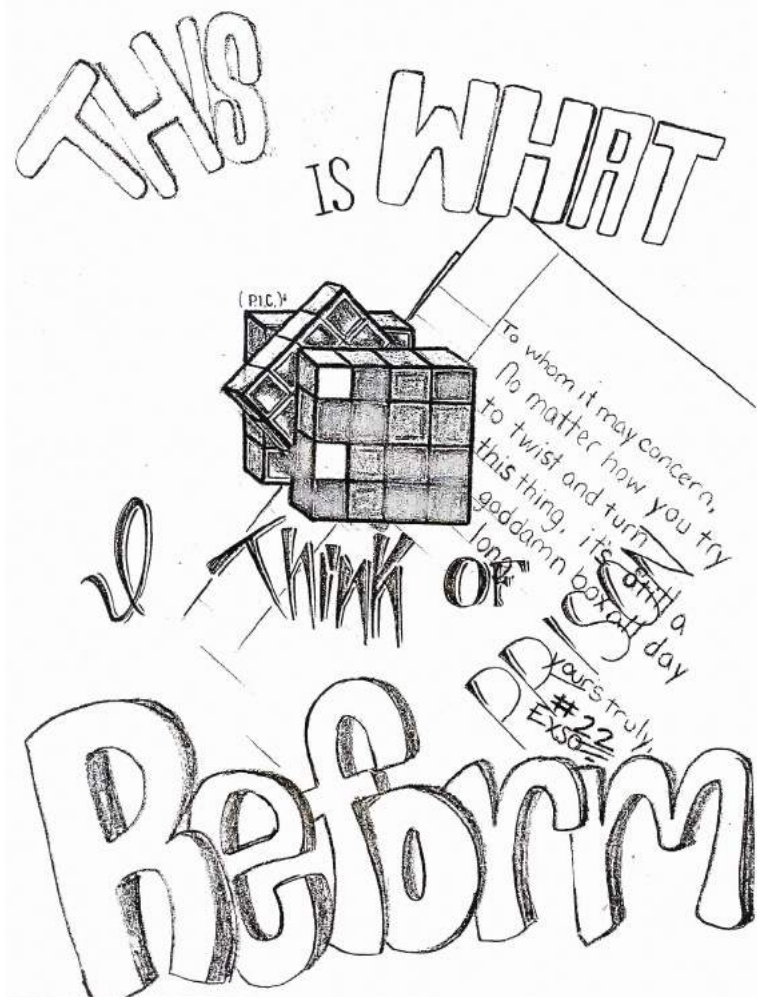 THIS
IS WHAT
(P.I.C.)
To whom it may concern,
No matter how you try
to twist and turn
this thing, it's still a
goddamn box all day
long
I Think OF
yours truly,
#22
EXSO
Reform